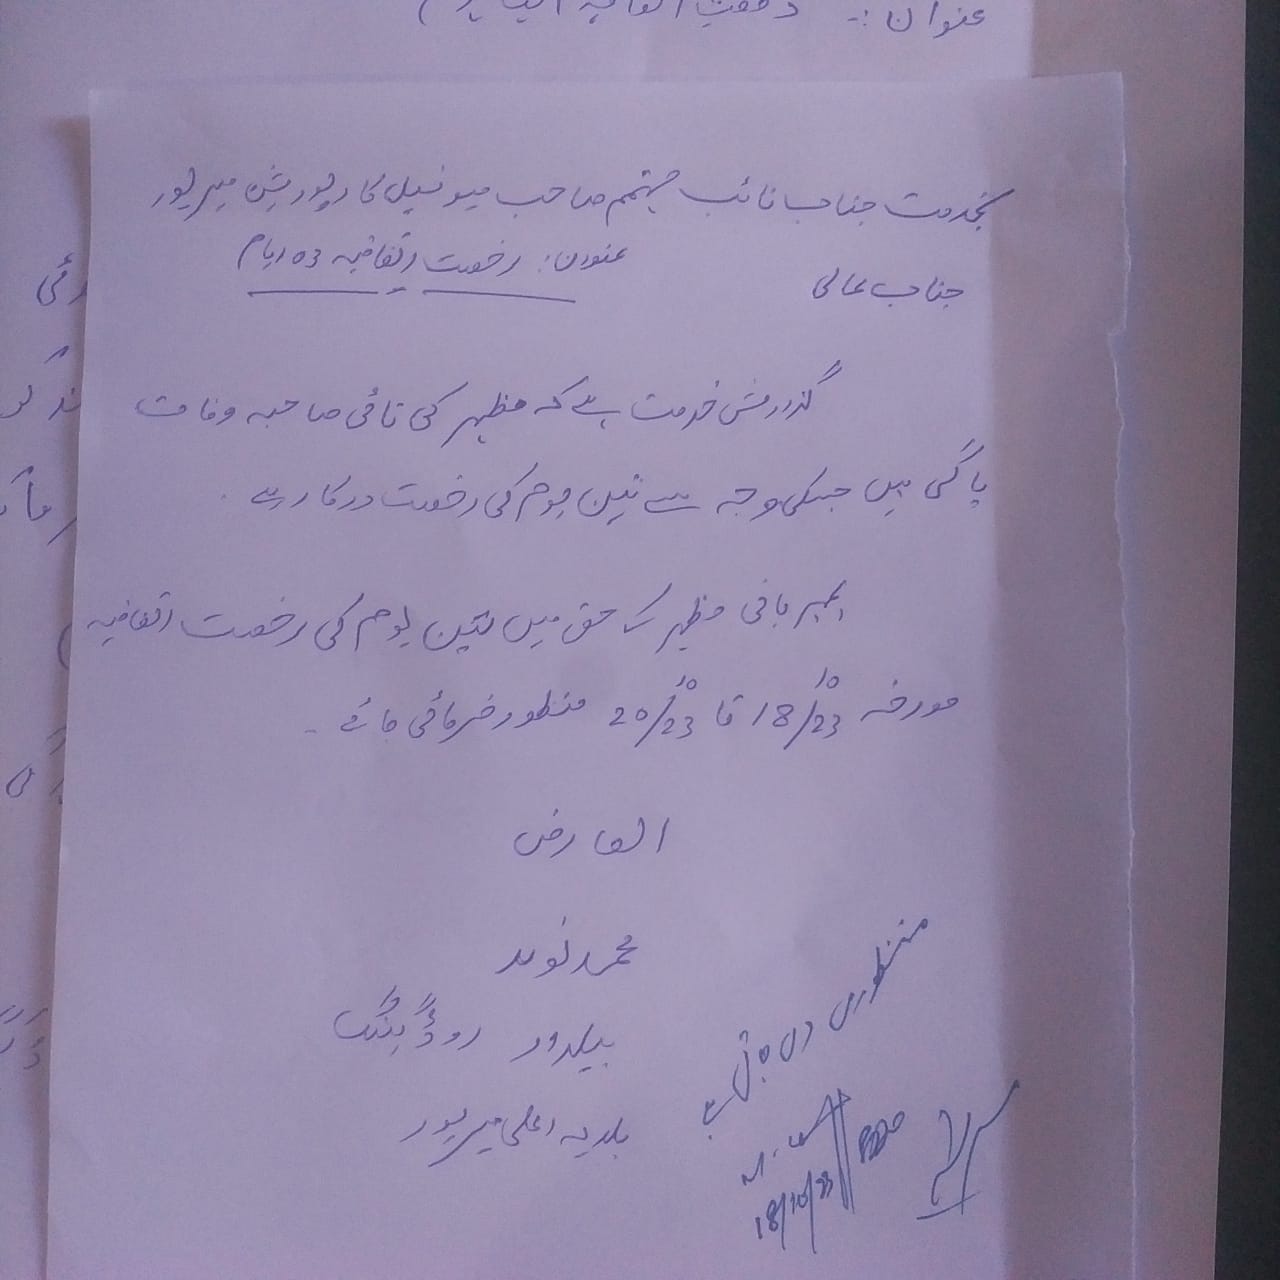 عنوان :-
بخدمت جناب نائب مہتمم صاحب میونسپل کارپوریشن میرپور
عنوان: رخصت اتفاقیہ 03 ایام
جناب عالی
گذارش خدمت ہے کہ مظہر کی تائی صاحبہ وفات
پا گئی ہیں جسکی وجہ سے تین یوم کی رخصت درکار ہے ۔
بمہربانی مظہر کے حق میں تین یوم کی رخصت اتفاقیہ
مورخہ 18/10/23 تا 20/10/23 منظور فرمائی جائے ۔
العارض
محمد نوید
بیلدار روڈ گینگ
بلدیہ اعلی میرپور
منظوری دی جاتی ہے
18/10/23